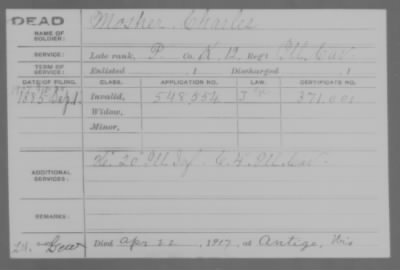 DEAD
NAME OF SOLDIER:
Mosher, Charles
SERVICE:
Late rank, P. Co. K, 12, Reg't Ill. Cav.
TERM OF SERVICE:
Enlisted , 1 Discharged , 1
DATE OF FILING. CLASS. APPLICATION NO. LAW. CERTIFICATE NO.
1885 Sept. Invalid, 548,554 371,001
Widow,
Minor,
ADDITIONAL SERVICES:
20" Ill Inf. Ill Cav.
REMARKS:
Died Apr 22, 1917, at Antigo, Wis